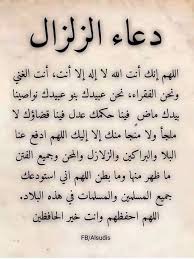 دعاء الزلزال
اللهم إنك أنت الله لا إله إلا أنت، أنت الغني
ونحن الفقراء، نحن عبيدك بنو عبيدك نواصينا
بيدك ماضٍ فينا حكمك عدل فينا قضاؤك لا
ملجأ ولا منجا منك إلا إليك اللهم ادفع عنا
البلا والبراكين والزلازل والمحن وجميع الفتن
ما ظهر منها وما بطن اللهم اني استودعك
جميع المسلمين والمسلمات في هذه البلاد.
اللهم احفظهم وانت خير الحافظين
FB/Alsudis